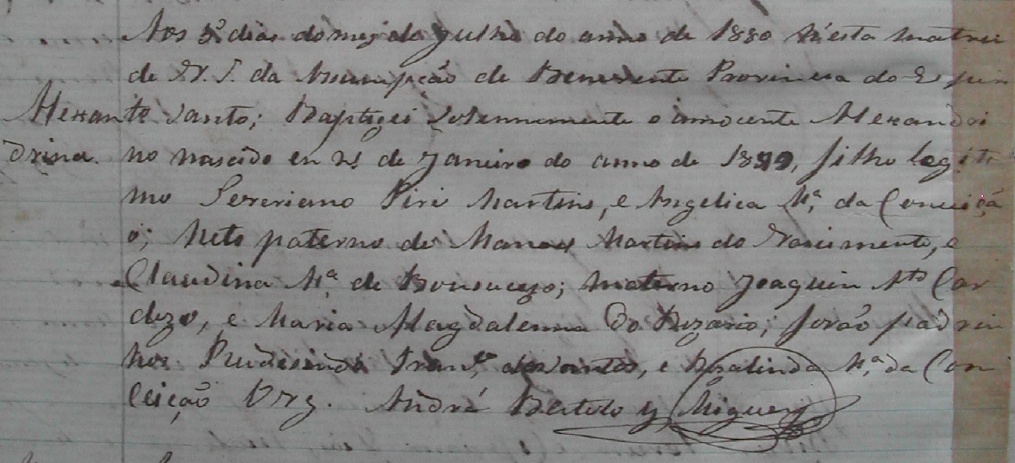 Aos 5 dias do mez de Julho do anno de 1880 n'esta matriz
de N. S. da Assumpção de Benevente Provincia do Espiri
to Santo; Baptizei solennemente o innocente Alexandri
Alexan
drina.
no nascido en 21 de Janeiro do anno de 1879, filho legiti
mo Severiano Piri Martins, e Angelica Mª. da Conceiçã
o; Neto paterno de Manoel Martins do Nascimento, e
Claudina Mª. de Bonsucezo; materno Joaquin Car
dozo, e Maria Magdalenna do Rozario; forão padri
nhos Franco. dos Santos, e Rozalinda Mª. da Con
ceição Vrg. André Bertolo y Miguez